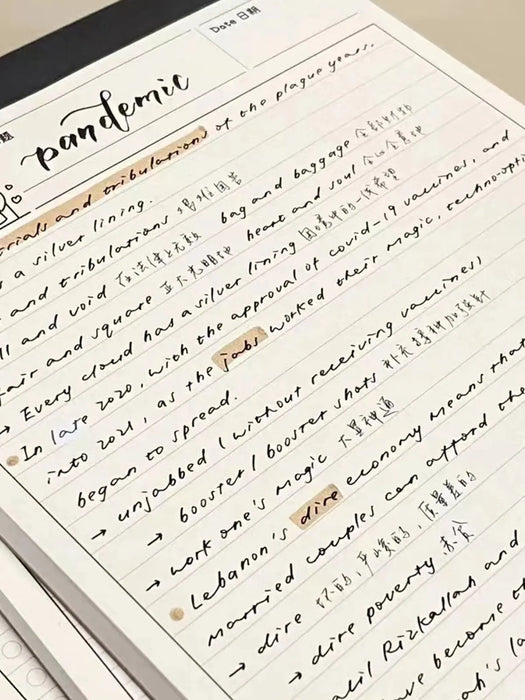 Date 日期
题
pandemic
trials and tribulations of the plague years.
a silver lining.
and tribulations 艰难困苦 bag and baggage 全部财物
and void 在法律上无效 heart and soul 全心全意地
fair and square 正大光明地 silver lining 困境中的一线希望
→ Every cloud has a silver lining
In late 2020, with the approval of covid-19 vaccines, and
into 2021, as the jabs worked their magic, techno-opti
began to spread.
→ unjabbed (without receiving vaccines)
→ booster / booster shots 补充接种/加强针
→ work one's magic 大显神通
Lebanon's dire economy means that
married couples can afford the
→ dire 坏的,严峻的,
→ dire poverty 赤贫
Rizkallah and
become
's la